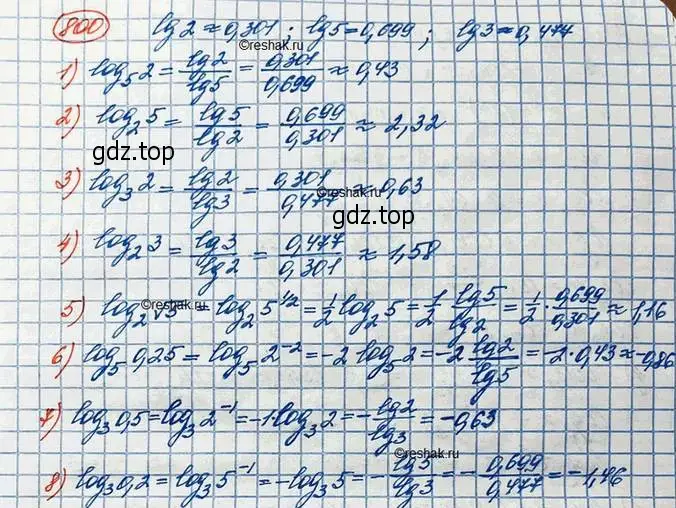 800 lg 2 ≈ 0,301 ; lg 5 = 0,699 ; lg 3 ≈ 0,477
©reshak.ru
1) log₅ 2 = lg 2 / lg 5 = 0,301 / 0,699 ≈ 0,43
2) log₂ 5 = lg 5 / lg 2 = 0,699 / 0,301 ≈ 2,32
gdz.top
3) log₃ 2 = lg 2 / lg 3 = 0,301 / 0,477 ≈ 0,63
©reshak.ru
gdz.top
4) log₂ 3 = lg 3 / lg 2 = 0,477 / 0,301 ≈ 1,58
5) log₂ √5 = log₂ 5^(1/2) = 1/2 log₂ 5 = 1/2 · lg 5 / lg 2 = 1/2 · 0,699 / 0,301 ≈ 1,16
©reshak.ru
6) log₅ 0,25 = log₅ 2⁻² = -2 log₅ 2 = -2 lg 2 / lg 5 = -2 · 0,43 ≈ -0,86
7) log₃ 0,5 = log₃ 2⁻¹ = -1 · log₃ 2 = - lg 2 / lg 3 = -0,63
©reshak.ru
8) log₃ 0,2 = log₃ 5⁻¹ = - log₃ 5 = - lg 5 / lg 3 = - 0,699 / 0,477 = -1,46